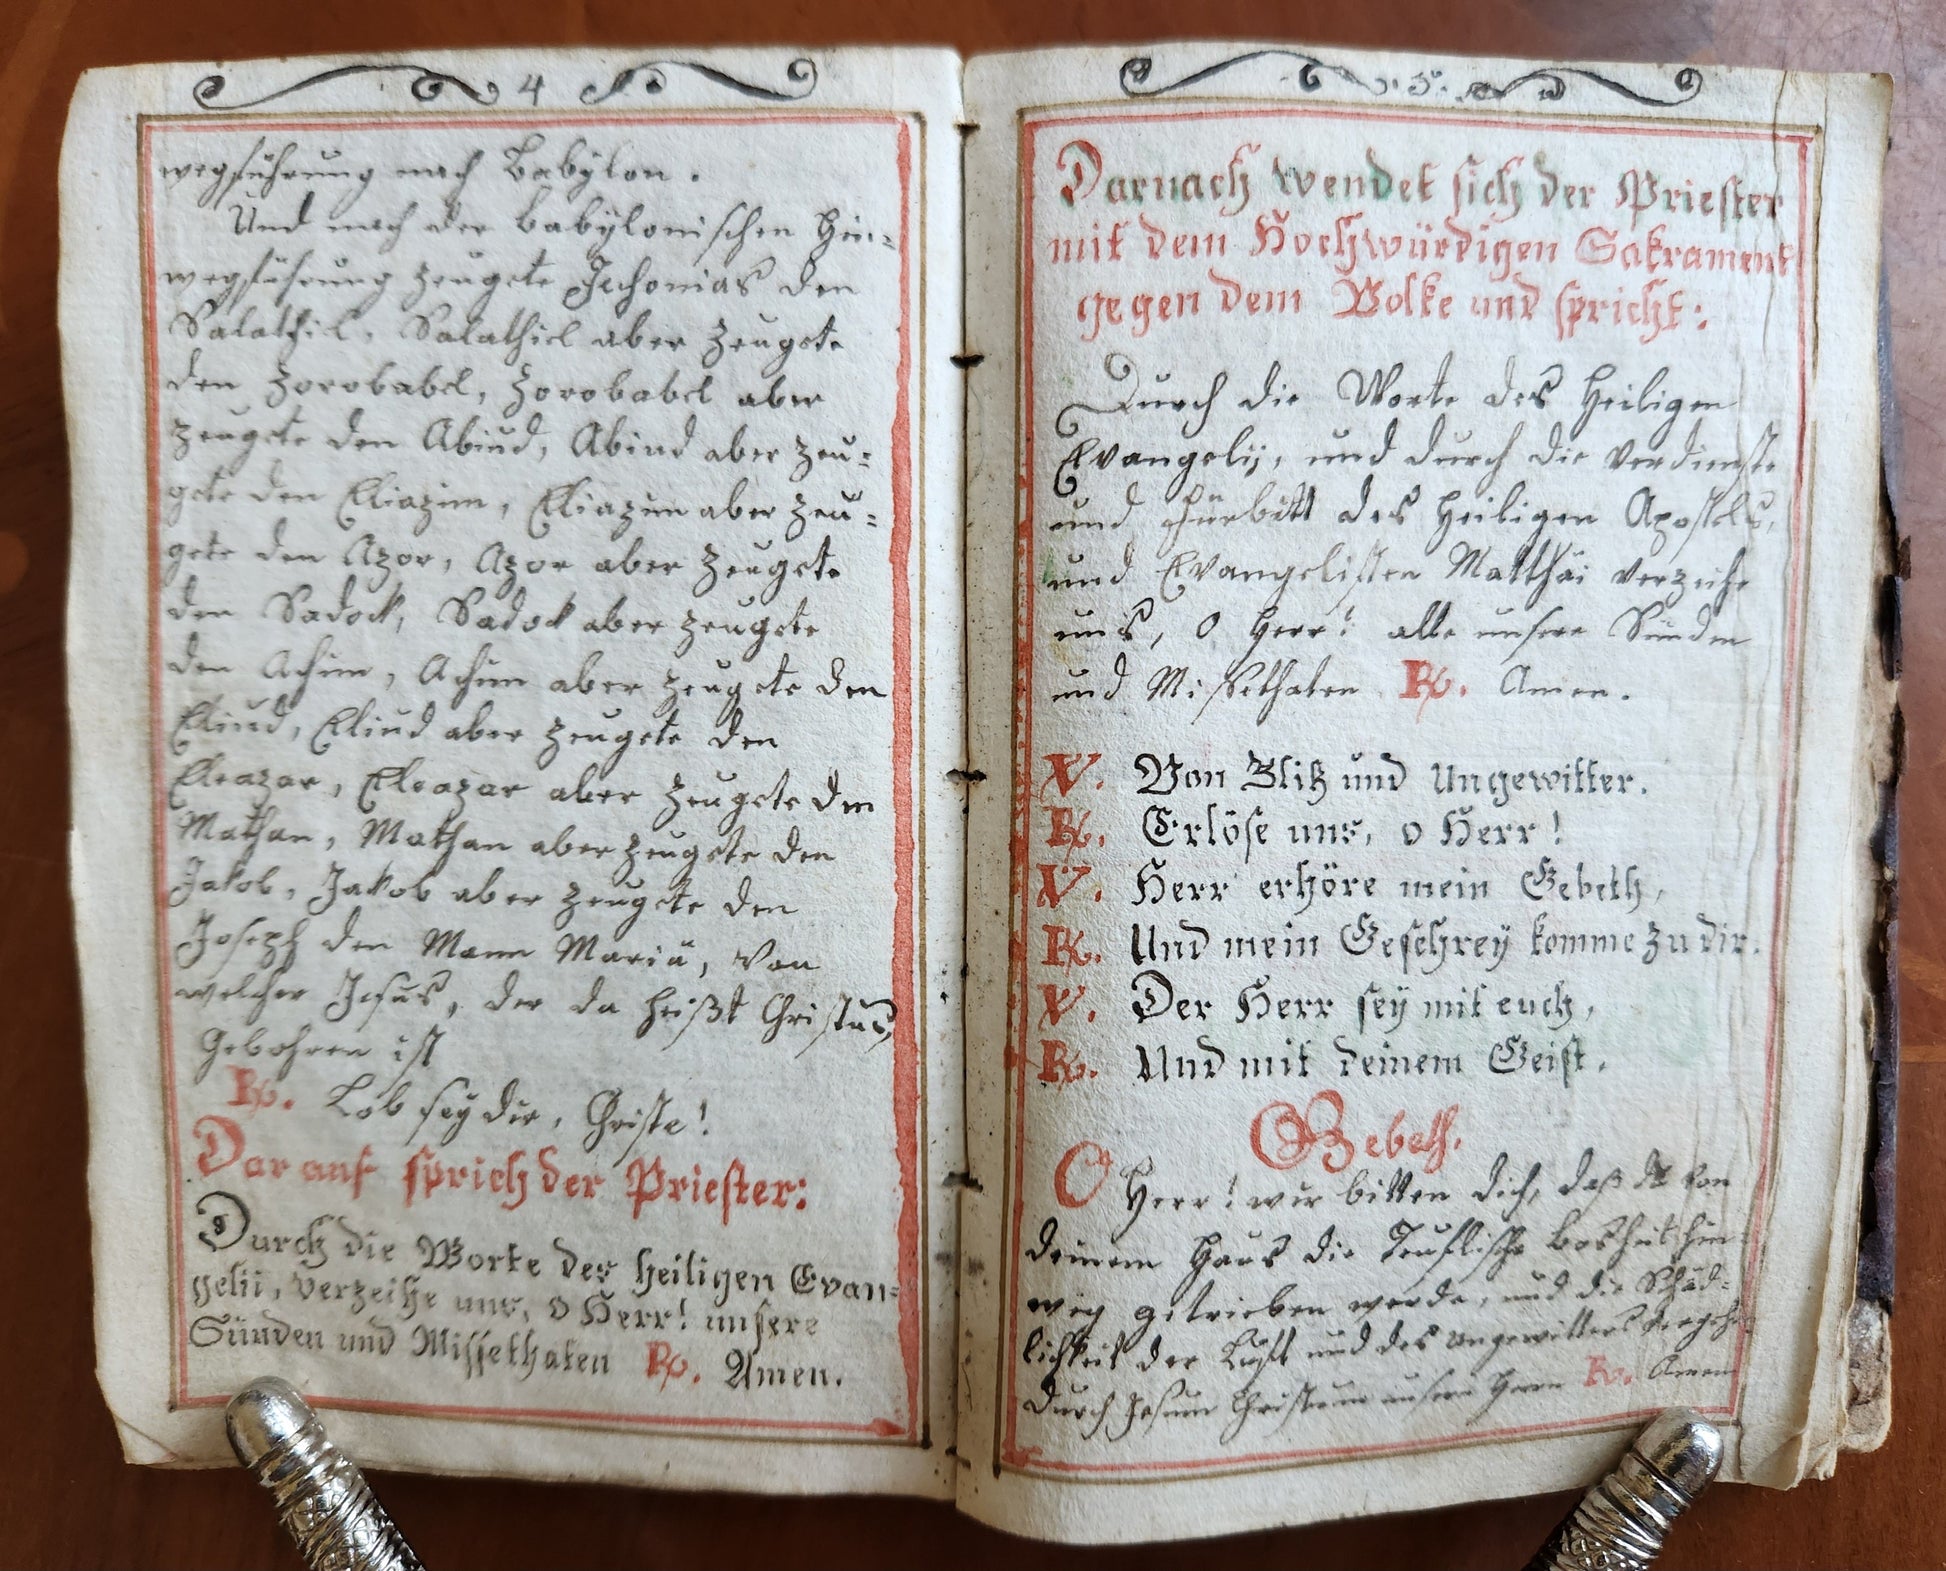 4
wegführung nach Babylon.
Und nach der babylonischen Hin=
wegführung zeugete Jechonias den
Salathiel, Salathiel aber zeugete
den Zorobabel, Zorobabel aber
zeugete den Abiud, Abiud aber zeu=
gete den Eliazim, Eliazim aber zeu=
gete den Azor, Azor aber zeugete
den Sadock, Sadock aber zeugete
den Achim, Achim aber zeugete den
Eliud, Eliud aber zeugete den
Eleazar, Eleazar aber zeugete den
Mathan, Mathan aber zeugete den
Jakob, Jakob aber zeugete den
Joseph den Mann Mariä, von
welcher Jesus, der da heißt Christus,
Gebohren ist
R. Lob sey dir, Christe!
Darauf sprich der Priester:
Durch die Worte des heiligen Evan=
gelii, verzeihe uns, o Herr! unsere
Sünden und Missethaten R. Amen.
5.
Darnach wendet sich der Priester
mit dem Hochwürdigen Sakrament
gegen dem Volke und spricht:
Durch die Worte des Heiligen
Evangelij, und durch die Verdienste
und Fürbitt des Heiligen Apostels,
und Evangelisten Matthäi verzeihe
uns, O Herr! alle unsere Sünden
und Missethaten R. Amen.
V. Von Blitz und Ungewitter.
R. Erlöse uns, o Herr!
V. Herr erhöre mein Gebeth,
R. Und mein Geschrey komme zu dir.
V. Der Herr sey mit euch,
R. Und mit deinem Geist.
Gebeth.
O Herr! wir bitten dich, daß du von
deinem Haus die Teuflische Bosheit hin=
weg getrieben werde, und die Schäd=
lichkeit der Luft und des Ungewitters
durch Jesum Christum unsern Herrn R. Amen